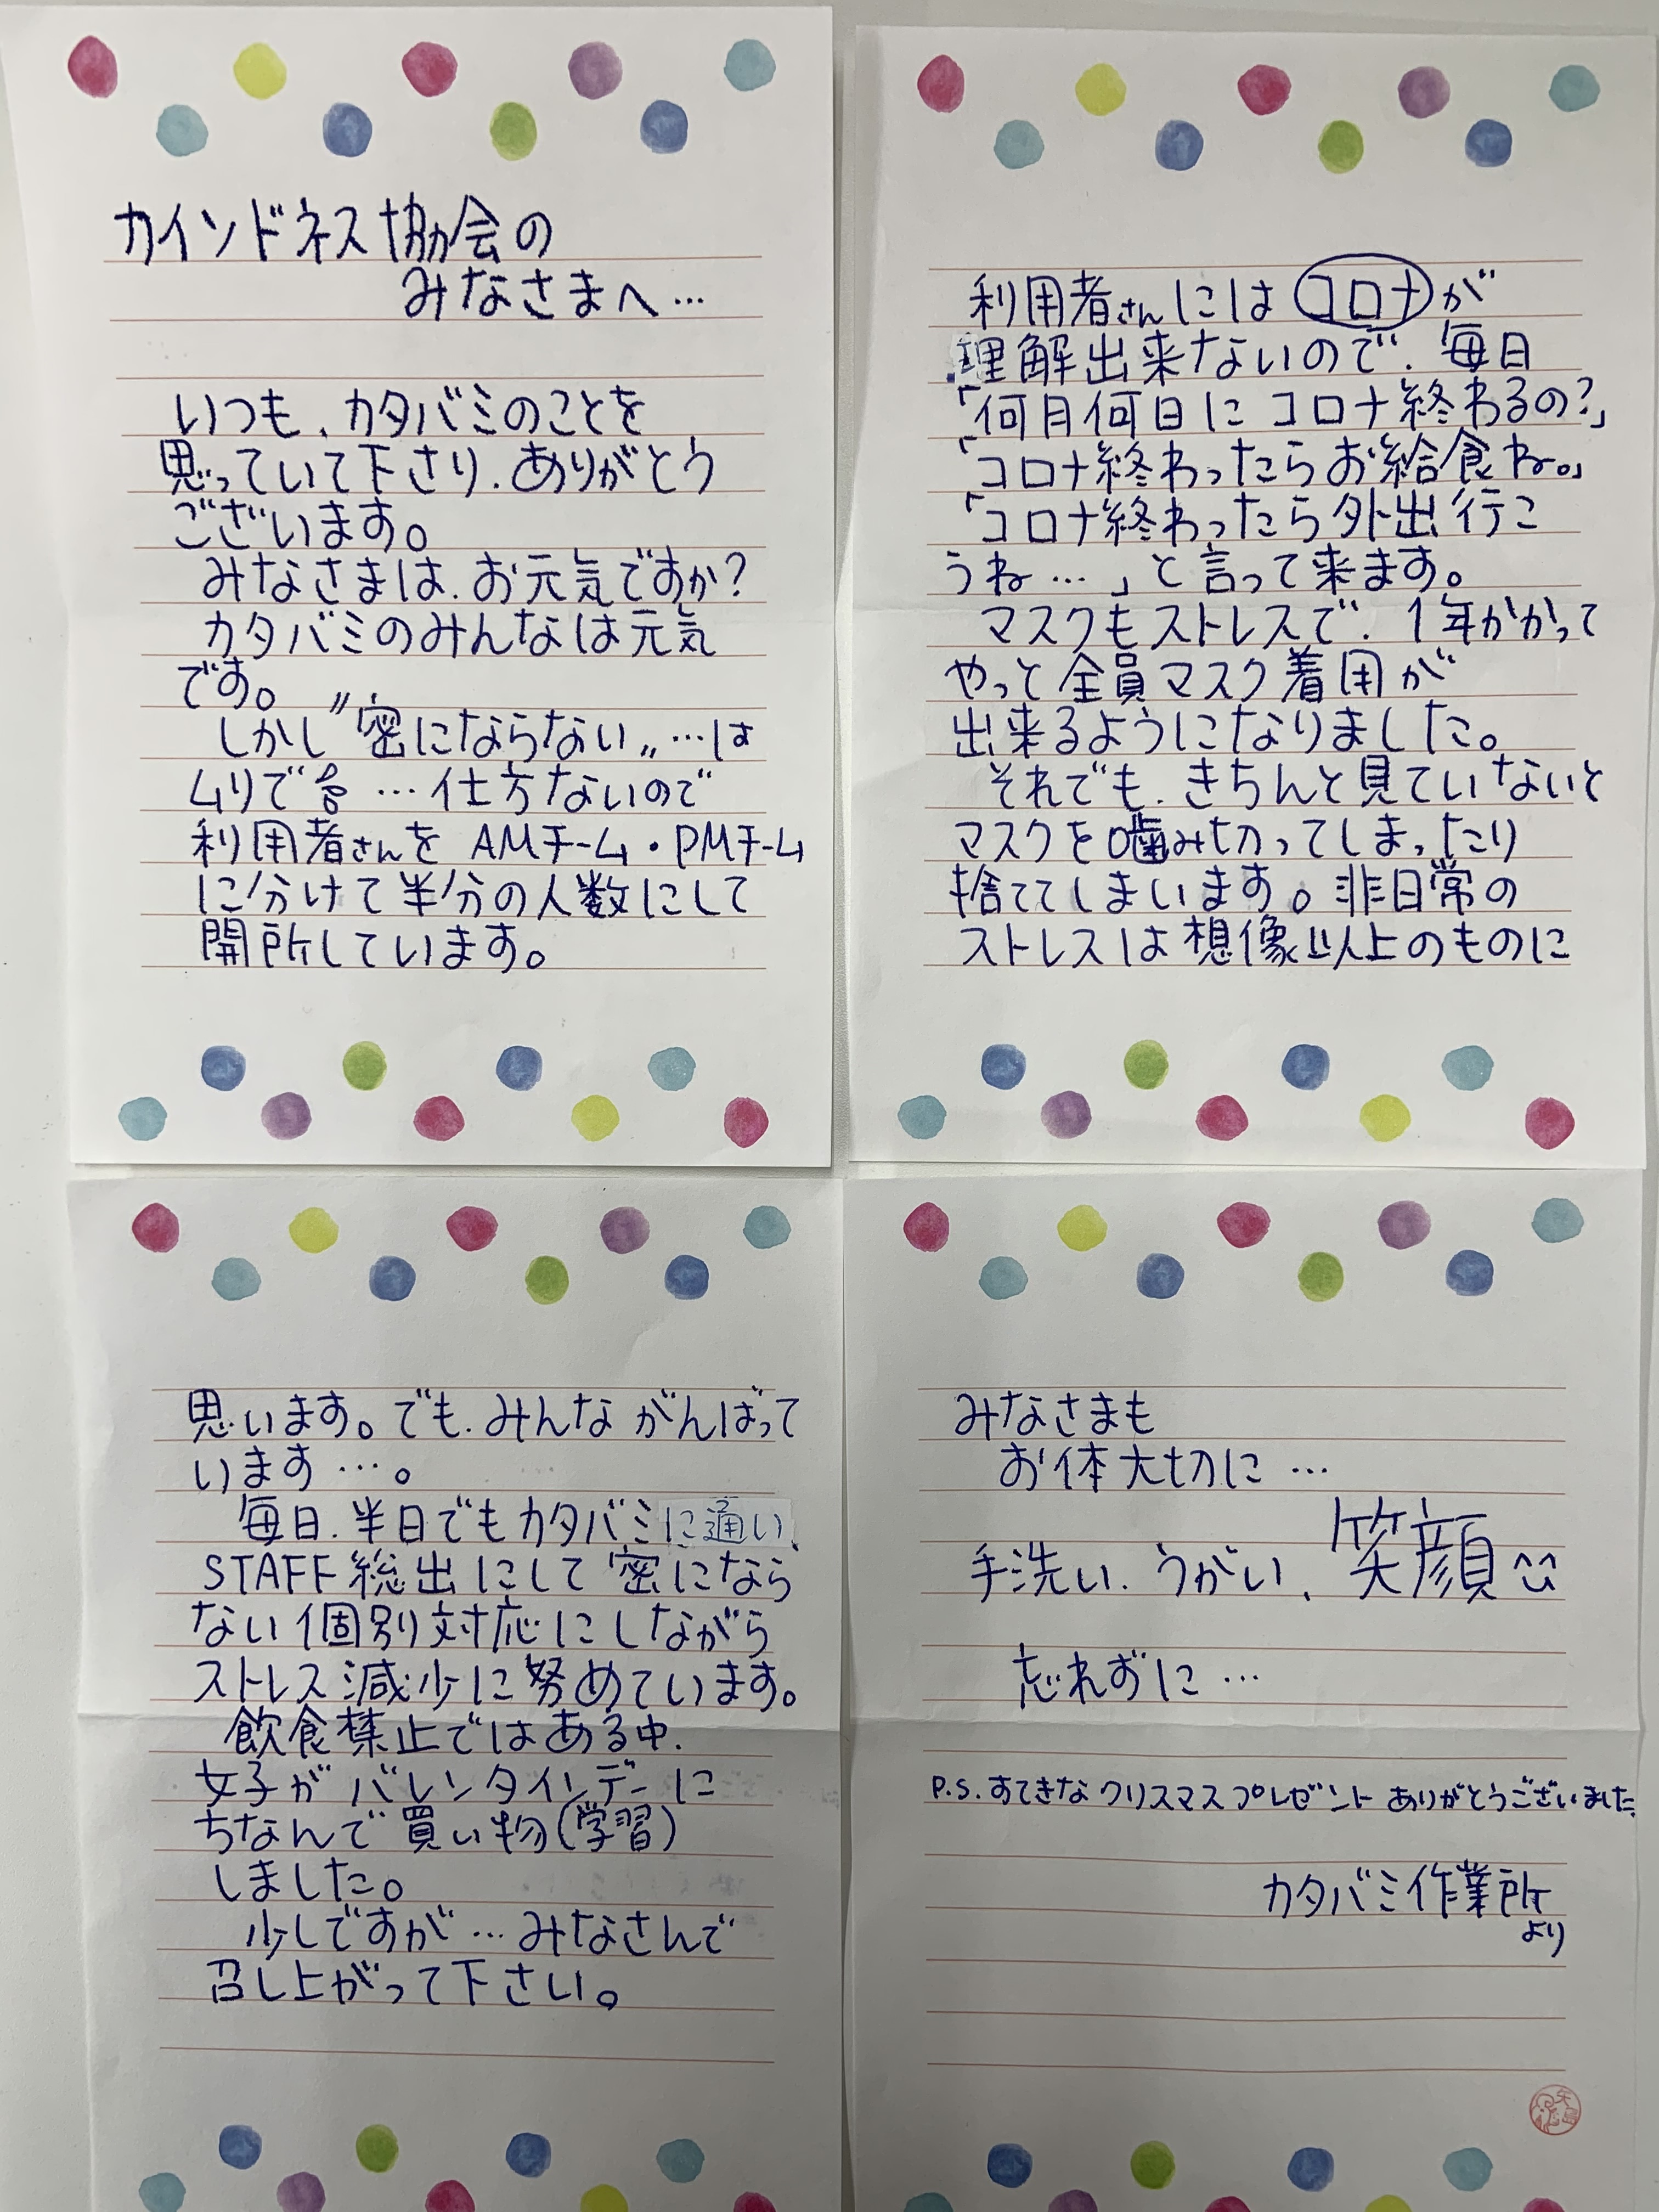 カインドネス協会の
みなさまへ…
いつも、カタバミのことを
思っていて下さり、ありがとう
ございます。
みなさまは、お元気ですか?
カタバミのみんなは元気
です。
しかし〝密にならない〟…は
ムリで…仕方ないので
利用者さんを AMチーム・PMチーム
に分けて半分の人数にして
開所しています。
利用者さんには コロナ が
理解出来ないので、毎日
「何月何日に コロナ終わるの?」
「コロナ終わったらお給食ね。」
「コロナ終わったら外出行こ
うね…」と言って来ます。
マスクもストレスで、1年かかって
やっと全員マスク着用が
出来るようになりました。
それでも、きちんと見ていないと
マスクを噛み切ってしまったり
捨ててしまいます。非日常の
ストレスは想像以上のものに
思います。でも、みんながんばって
います…。
毎日、半日でもカタバミに通い、
STAFF総出にして密になら
ない個別対応にしながら
ストレス減少に努めています。
飲食禁止ではある中、
女子がバレンタインデーに
ちなんで買い物(学習)
しました。
少しですが…みなさんで
召し上がって下さい。
みなさまも
お体大切に…
手洗い、うがい、笑顔
忘れずに…
P.S.すてきなクリスマスプレゼントありがとうございました。
カタバミ作業所
より